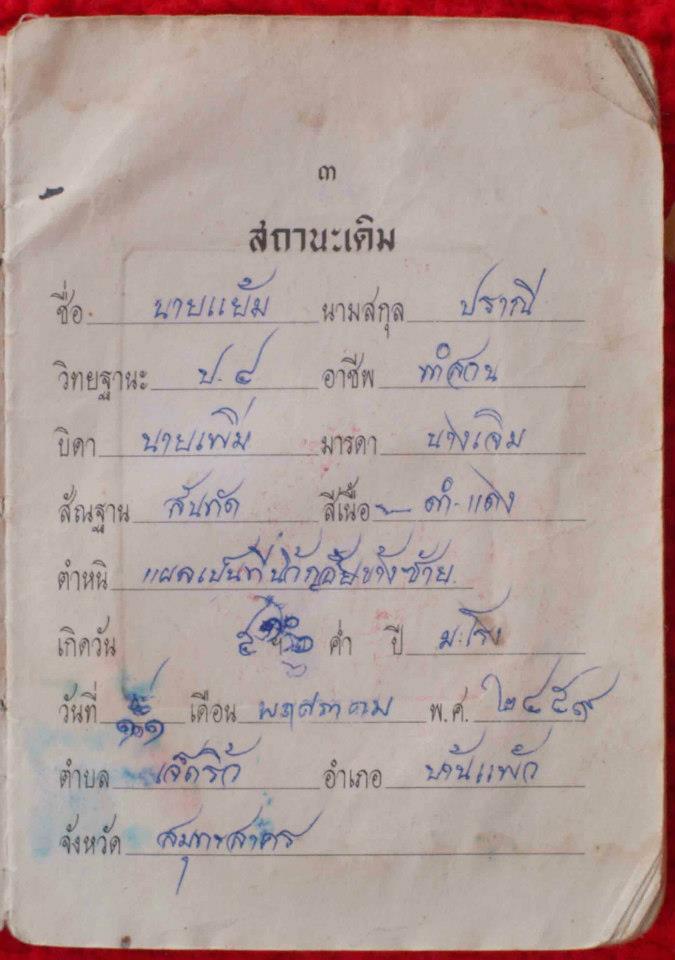 ๓
สถานะเดิม
ชื่อ นายแย้ม นามสกุล ปราณี
วิทยฐานะ ป.๔ อาชีพ ทำสวน
บิดา นายเพิ่ม มารดา นางเจิม
สัณฐาน สันทัด สีเนื้อ ดำ-แดง
ตำหนิ แผลเป็นที่นิ้วก้อยข้างซ้าย
เกิดวัน ค่ำ ปี มะโรง
วันที่ เดือน พฤษภาคม พ.ศ. ๒๔๕๙
ตำบล เจ็ดริ้ว อำเภอ บ้านแพ้ว
จังหวัด สมุทรสาคร